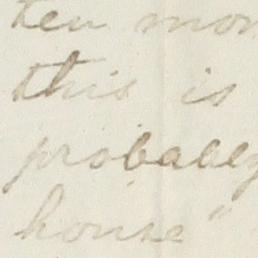 ten mon
this is
probably
house"